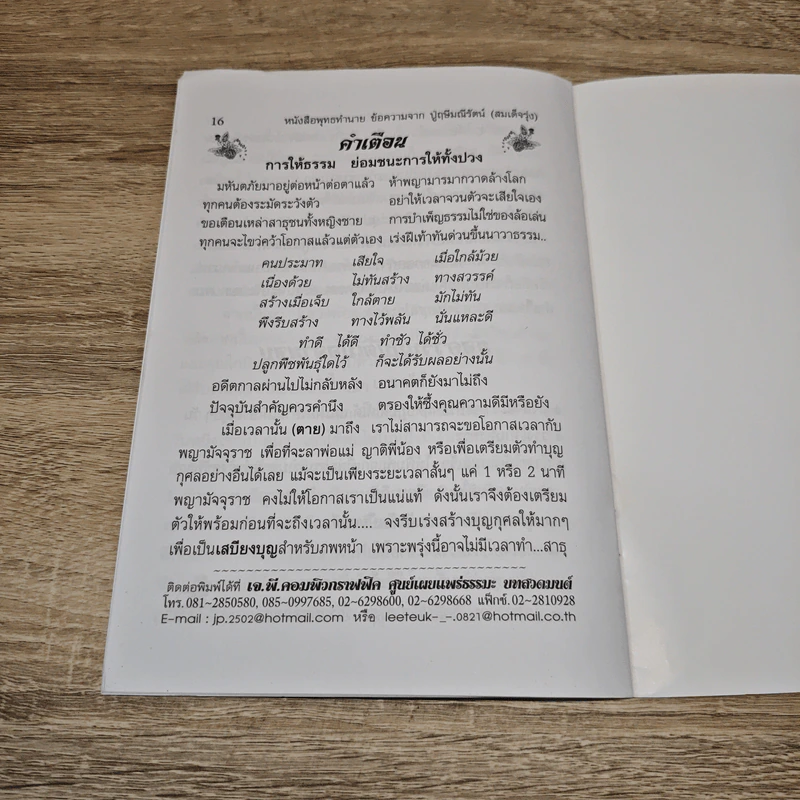 16 หนังสือพุทธทำนาย ข้อความจาก ปู่ฤษีมณีรัตน์ (สมเด็จรุ่ง)
คำเตือน
การให้ธรรม ย่อมชนะการให้ทั้งปวง
มหันตภัยมาอยู่ต่อหน้าต่อตาแล้ว ห้าพญามารมากวาดล้างโลก
ทุกคนต้องระมัดระวังตัว อย่าให้เวลาจวนตัวจะเสียใจเอง
ขอเตือนเหล่าสาธุชนทั้งหญิงชาย การบำเพ็ญธรรมไม่ใช่ของล้อเล่น
ทุกคนจะไขว่คว้าโอกาสแล้วแต่ตัวเอง เร่งฝีเท้าทันด่วนขึ้นนาวาธรรม..
คนประมาท เสียใจ เมื่อใกล้ม้วย
เนื่องด้วย ไม่ทันสร้าง ทางสวรรค์
สร้างเมื่อเจ็บ ใกล้ตาย มักไม่ทัน
พึงรีบสร้าง ทางไว้พลัน นั่นแหละดี
ทำดี ได้ดี ทำชั่ว ได้ชั่ว
ปลูกพืชพันธุ์ใดไว้ ก็จะได้รับผลอย่างนั้น
อดีตกาลผ่านไปไม่กลับหลัง อนาคตก็ยังมาไม่ถึง
ปัจจุบันสำคัญควรคำนึง ตรองให้ซึ้งคุณความดีมีหรือยัง
เมื่อเวลานั้น (ตาย) มาถึง เราไม่สามารถจะขอโอกาสเวลากับ
พญามัจจุราช เพื่อที่จะลาพ่อแม่ ญาติพี่น้อง หรือเพื่อเตรียมตัวทำบุญ
กุศลอย่างอื่นได้เลย แม้จะเป็นเพียงระยะเวลาสั้นๆ แค่ 1 หรือ 2 นาที
พญามัจจุราช คงไม่ให้โอกาสเราเป็นแน่แท้ ดังนั้นเราจึงต้องเตรียม
ตัวให้พร้อมก่อนที่จะถึงเวลานั้น.... จงรีบเร่งสร้างบุญกุศลให้มากๆ
เพื่อเป็นเสบียงบุญสำหรับภพหน้า เพราะพรุ่งนี้อาจไม่มีเวลาทำ...สาธุ
ติดต่อพิมพ์ได้ที่ เจ.พี.คอมพิวกราฟฟิค ศูนย์เผยแพร่ธรรมะ บทสวดมนต์
โทร. 081~2850580, 085~0997685, 02~6298600, 02~6298668 แฟ็กซ์. 02~2810928
E-mail : jp.2502@hotmail.com หรือ leeteuk-_-.0821@hotmail.co.th